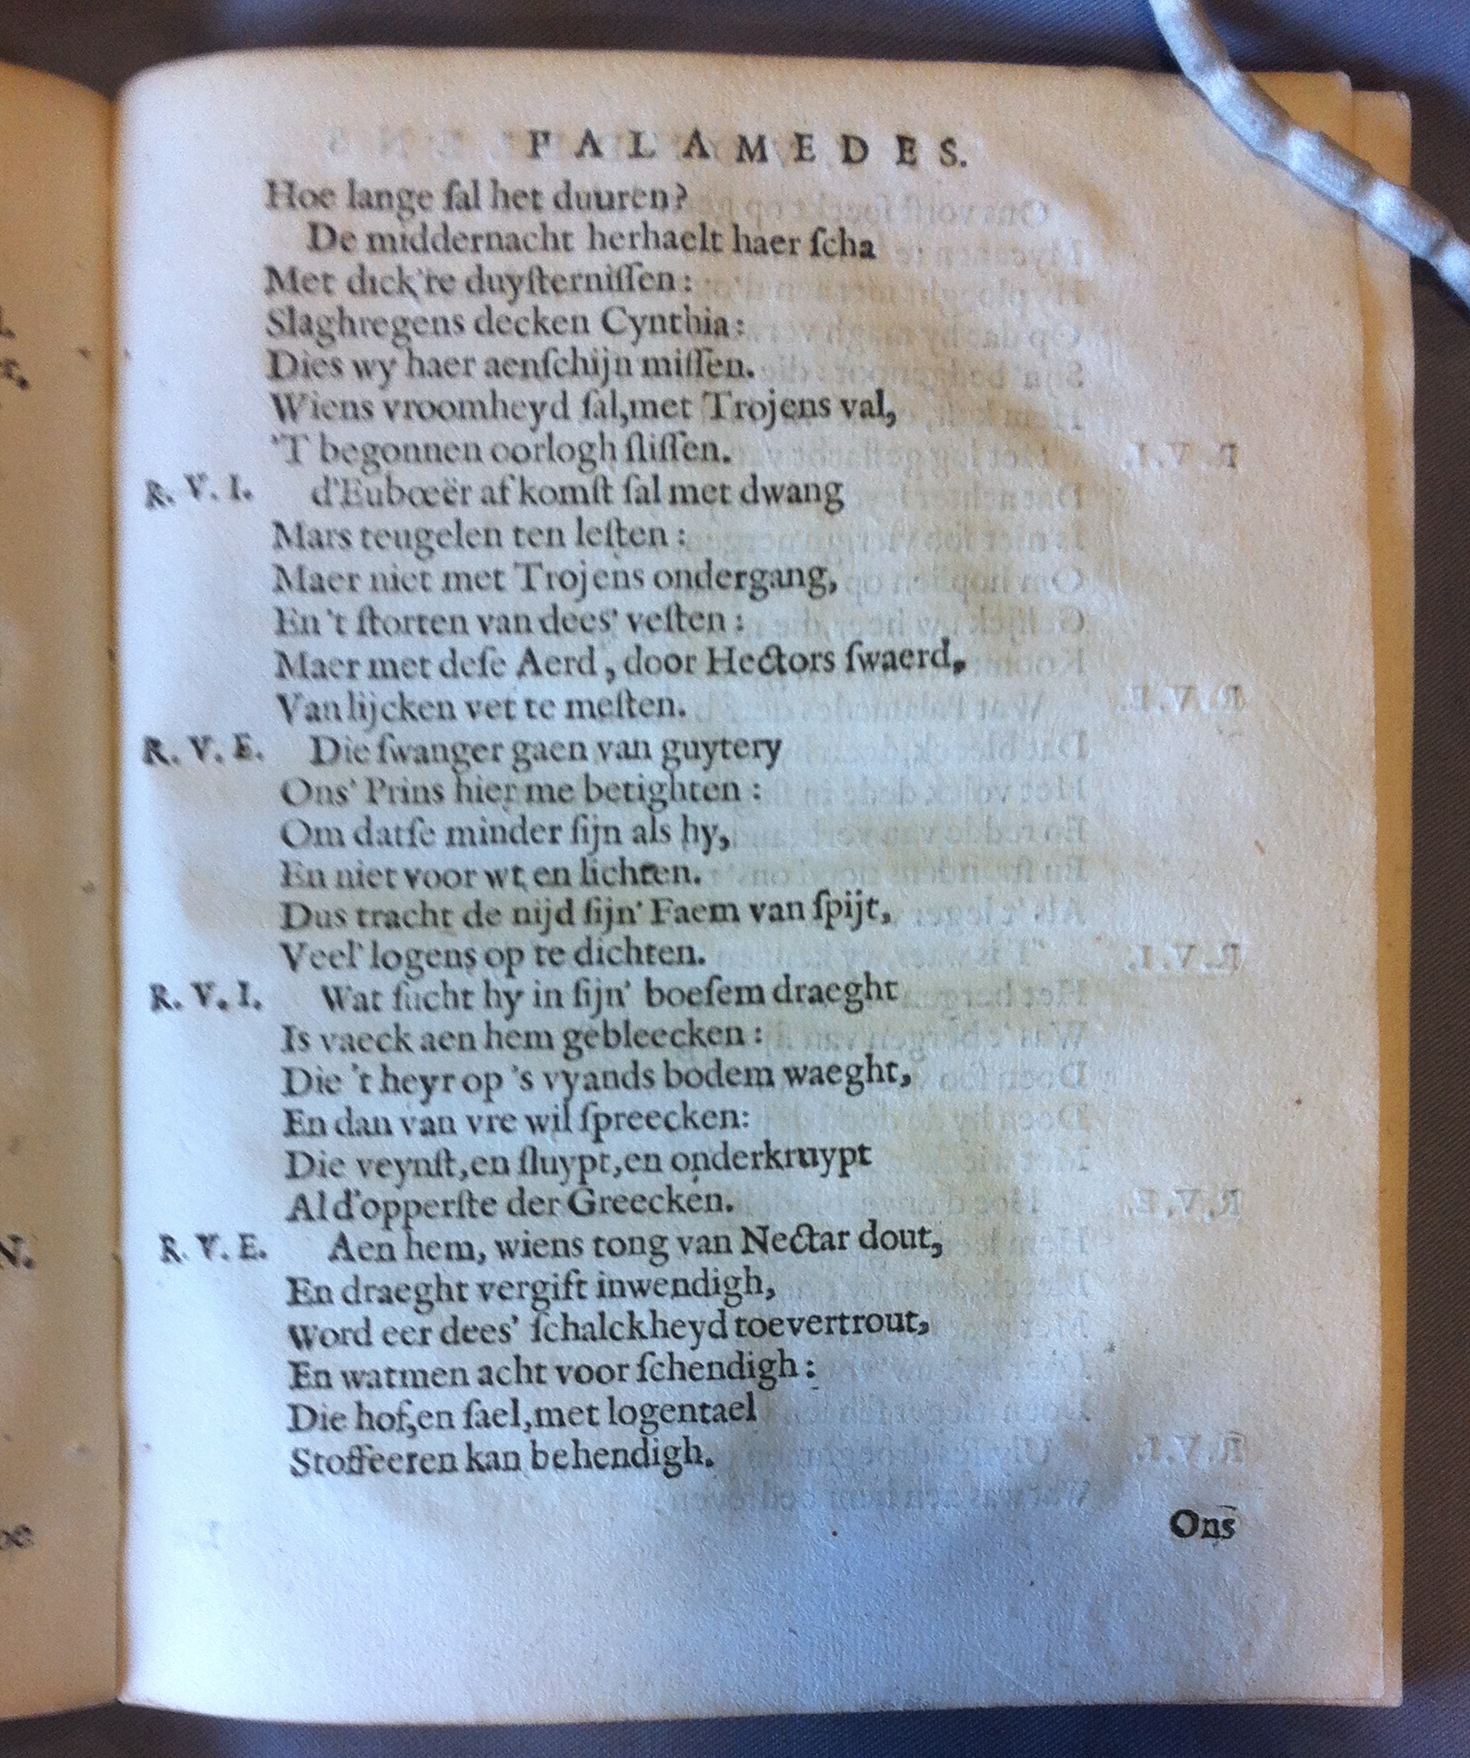 PALAMEDES.
Hoe lange ſal het duuren?
De middernacht herhaelt haer ſcha
Met dick're duyſterniſſen:
Slaghregens decken Cynthia:
Dies wy haer aenſchijn miſſen.
Wiens vroomheyd ſal,met Trojens val,
'T begonnen oorlogh ſliſſen.
R. V. I. d'Eubœër af komſt ſal met dwang
Mars teugelen ten leſten:
Maer niet met Trojens ondergang,
En 't ſtorten van dees' veſten:
Maer met deſe Aerd, door Hectors ſwaerd,
Van lijcken vet te meſten.
R. V. E. Die ſwanger gaen van guytery
Ons' Prins hier me betighten:
Om datſe minder ſijn als hy,
En niet voor wt en lichten.
Dus tracht de nijd ſijn' Faem van ſpijt,
Veel' logens op te dichten.
R. V. I. Wat ſucht hy in ſijn' boeſem draeght
Is vaeck aen hem gebleecken:
Die 't heyr op 's vyands bodem waeght,
En dan van vre wil ſpreecken:
Die veynſt,en ſluypt,en onderkruypt
Al d'opperſte der Greecken.
R. V. E. Aen hem, wiens tong van Nectar dout,
En draeght vergift inwendigh,
Word eer dees' ſchalckheyd toevertrout,
En watmen acht voor ſchendigh:
Die hof,en ſael,met logentael
Stoffeeren kan behendigh.
Ons